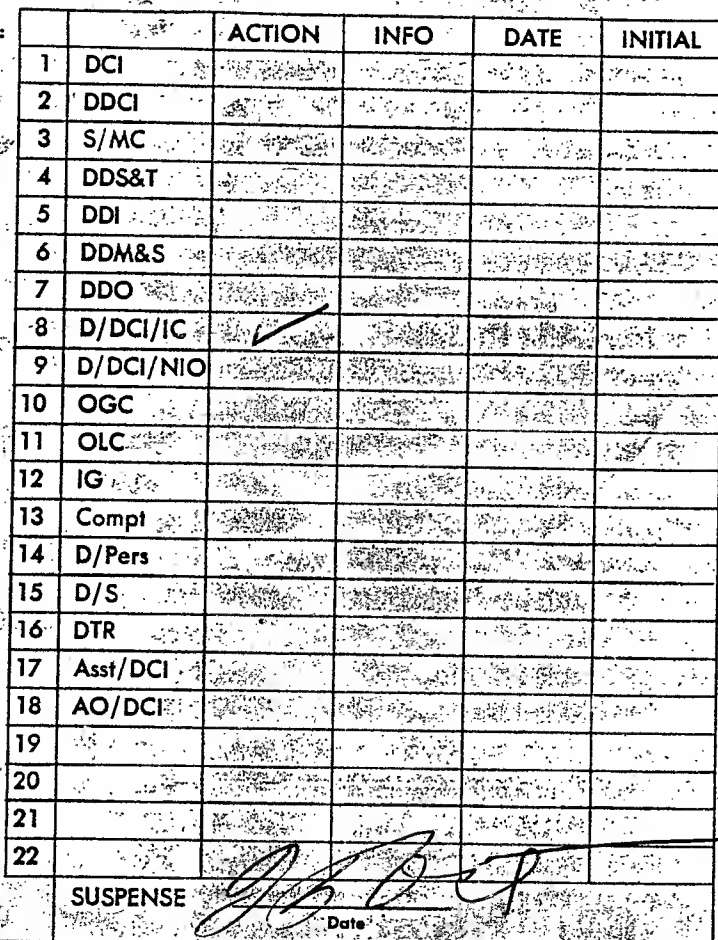 :
ACTION INFO DATE INITIAL
1 DCI
2 DDCI
3 S/MC
4 DDS&T
5 DDI
6 DDM&S
7 DDO
8 D/DCI/IC ✓
9 D/DCI/NIO
10 OGC
11 OLC
12 IG
13 Compt
14 D/Pers
15 D/S
16 DTR
17 Asst/DCI
18 AO/DCI
19
20
21
22
SUSPENSE
Date